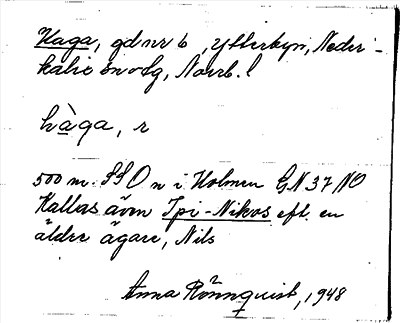 Haga, gd nr 6, Ytterbyn, Neder-
kalix sn o sg, Norrb. l
hàga, r
500 m. SSO n i Holmen GN 37 NO
Kallas även Ipi-Nikos eft. en
äldre ägare, Nils
Anna Rönnquist, 1948